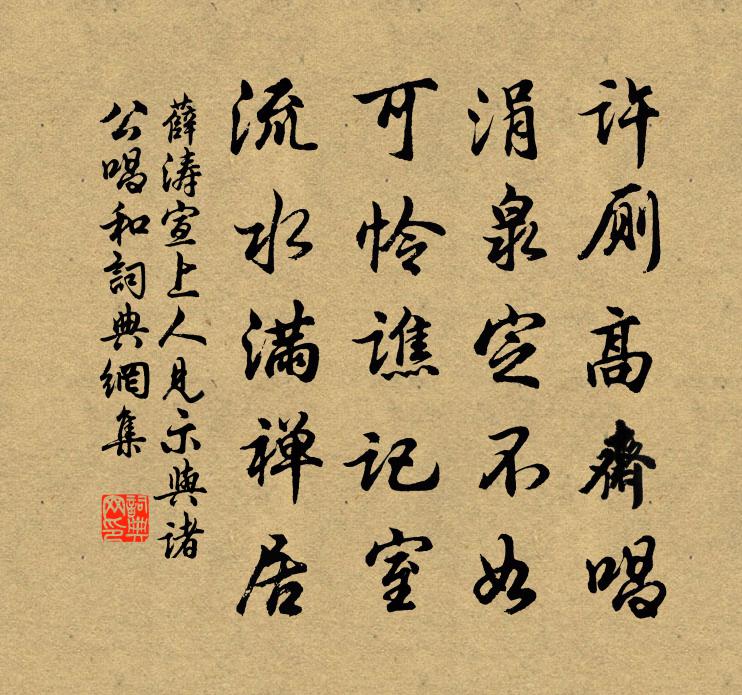 許厠高齋唱
涓泉定不如
可怜譙記室
流水滿禅居
薛濤宣上人見示與諸
公唱和詞典網集
詞典网印